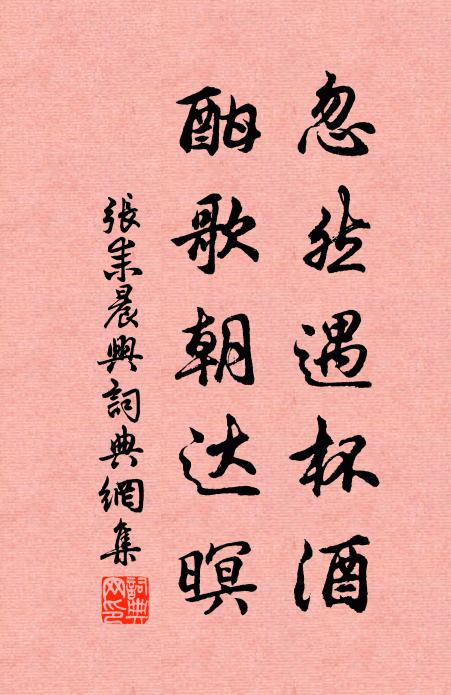 忽然遇杯酒
酣歌朝达暝
張耒晨興詞典網集
詞典网